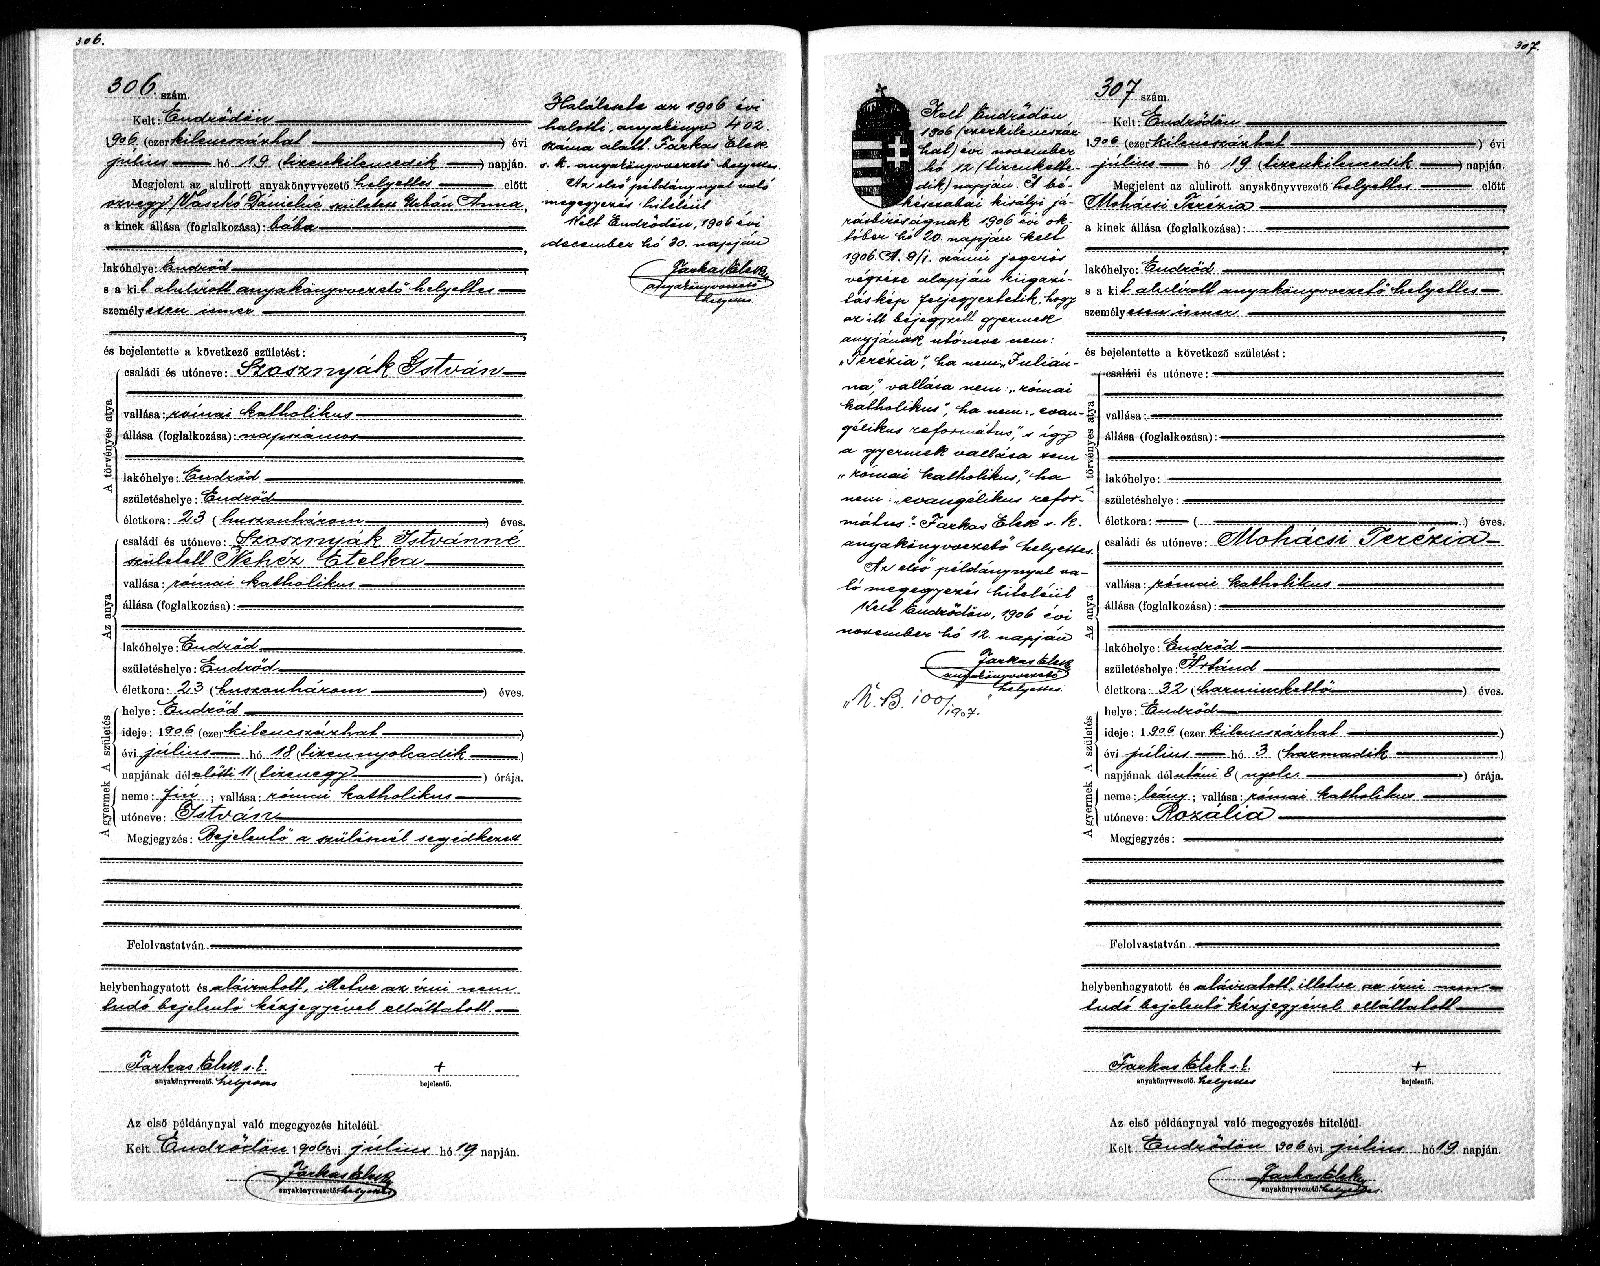 306.
306 szám.
Kelt: Endrődön
1906 (ezer kilenczszázhat) évi
július hó 19 (tizenkilenczedik) napján.
Megjelent az alulirott anyakönyvvezető helyettes előtt
özvegy Vaskó Dánielné született Urbán Anna,
a kinek állása (foglalkozása): bába
lakóhelye: Endrőd
s a kit alulírott anyakönyvvezető helyettes
személyesen ismer
és bejelentette a következő születést:
A törvényes atya
családi és utóneve: Szosznyák István
vallása: római katholikus
állása (foglalkozása): napszámos
lakóhelye: Endrőd
születéshelye: Endrőd
életkora: 23 (huszonhárom) éves.
Az anya
családi és utóneve: Szosznyák Istvánné
született Nehéz Etelka
vallása: római katholikus
állása (foglalkozása):
lakóhelye: Endrőd
születéshelye: Endrőd
életkora: 23 (huszonhárom) éves.
A születés
helye: Endrőd
ideje: 1906 (ezer kilenczszázhat)
évi július hó 18 (tizennyolczadik)
napjának délelőtti 11 (tizenegy) órája.
A gyermek
neme: fiú; vallása: római katholikus
utóneve: István
Megjegyzés: Bejelentő a szülésnél segédkezett
Felolvastatván
helybenhagyatott és aláiratott, illetve az írni nem
tudó bejelentő kézjegyével elláttatott.
Farkas Elek s. k. +
anyakönyvvezető. helyettes bejelentő.
Az első példánynyal való megegyezés hiteléül.
Kelt Endrődön 1906 évi július hó 19 napján.
Farkas Elek
anyakönyvvezető helyettes
Halálesete az 1906 évi
halotti anyakönyv 402.
száma alatt. Farkas Elek
s. k. anyakönyvvezető helyettes.
Az első példánynyal való
megegyezés hiteléül
Kelt Endrődön, 1906 évi
december hó 30. napján
Farkas Elek
anyakönyvvezető
helyettes.
307.
Kelt Endrődön,
1906 (ezerkilenczszáz-
hat) évi november
hó 12 (tizenkette-
dik) napján. A bé-
késcsabai királyi já-
rásbíróságnak 1906 évi ok-
tóber hó 20. napján kelt
1906 számú jogerős
végzése alapján kiigazí-
táskép feljegyeztetik, hogy
az itt bejegyzett gyermek
anyjának utóneve nem:
„Terézia", ha nem „Julián-
na", vallása nem: „római
katholikus", ha nem: „evan-
gélikus református", s így
a gyermek vallása sem
„római katholikus," ha
nem: „evangélikus refor-
mátus". Farkas Elek s. k.
anyakönyvvezető helyettes.
Az első példánynyal va-
ló megegyezés hiteléül
Kelt Endrődön, 1906 évi
november hó 12. napján
Farkas Elek
anyakönyvvezető
helyettes.
100/1907.
307 szám.
Kelt: Endrődön
1906 (ezer kilenczszázhat) évi
július hó 19 (tizenkilenczedik) napján.
Megjelent az alulirott anyakönyvvezető helyettes előtt
Mohácsi Terézia
a kinek állása (foglalkozása):
lakóhelye: Endrőd
s a kit alulírott anyakönyvvezető helyettes
személyesen ismer
és bejelentette a következő születést:
A törvényes atya
családi és utóneve:
vallása:
állása (foglalkozása):
lakóhelye:
születéshelye:
életkora: ( ) éves.
Az anya
családi és utóneve: Mohácsi Terézia
vallása: római katholikus
állása (foglalkozása):
lakóhelye: Endrőd
születéshelye: Ártánd
életkora: 32 (harminckettő) éves.
A születés
helye: Endrőd
ideje: 1906 (ezer kilenczszázhat)
évi július hó 3 (harmadik)
napjának délutáni 8 (nyolc) órája.
A gyermek
neme: leány; vallása: római katholikus
utóneve: Rozália
Megjegyzés:
Felolvastatván
helybenhagyatott és aláiratott, illetve az írni nem
tudó bejelentő kézjegyével elláttatott
Farkas Elek s. k. +
anyakönyvvezető. helyettes bejelentő.
Az első példánynyal való megegyezés hiteléül.
Kelt Endrődön 1906 évi július hó 19. napján.
Farkas Elek
anyakönyvvezető helyettes